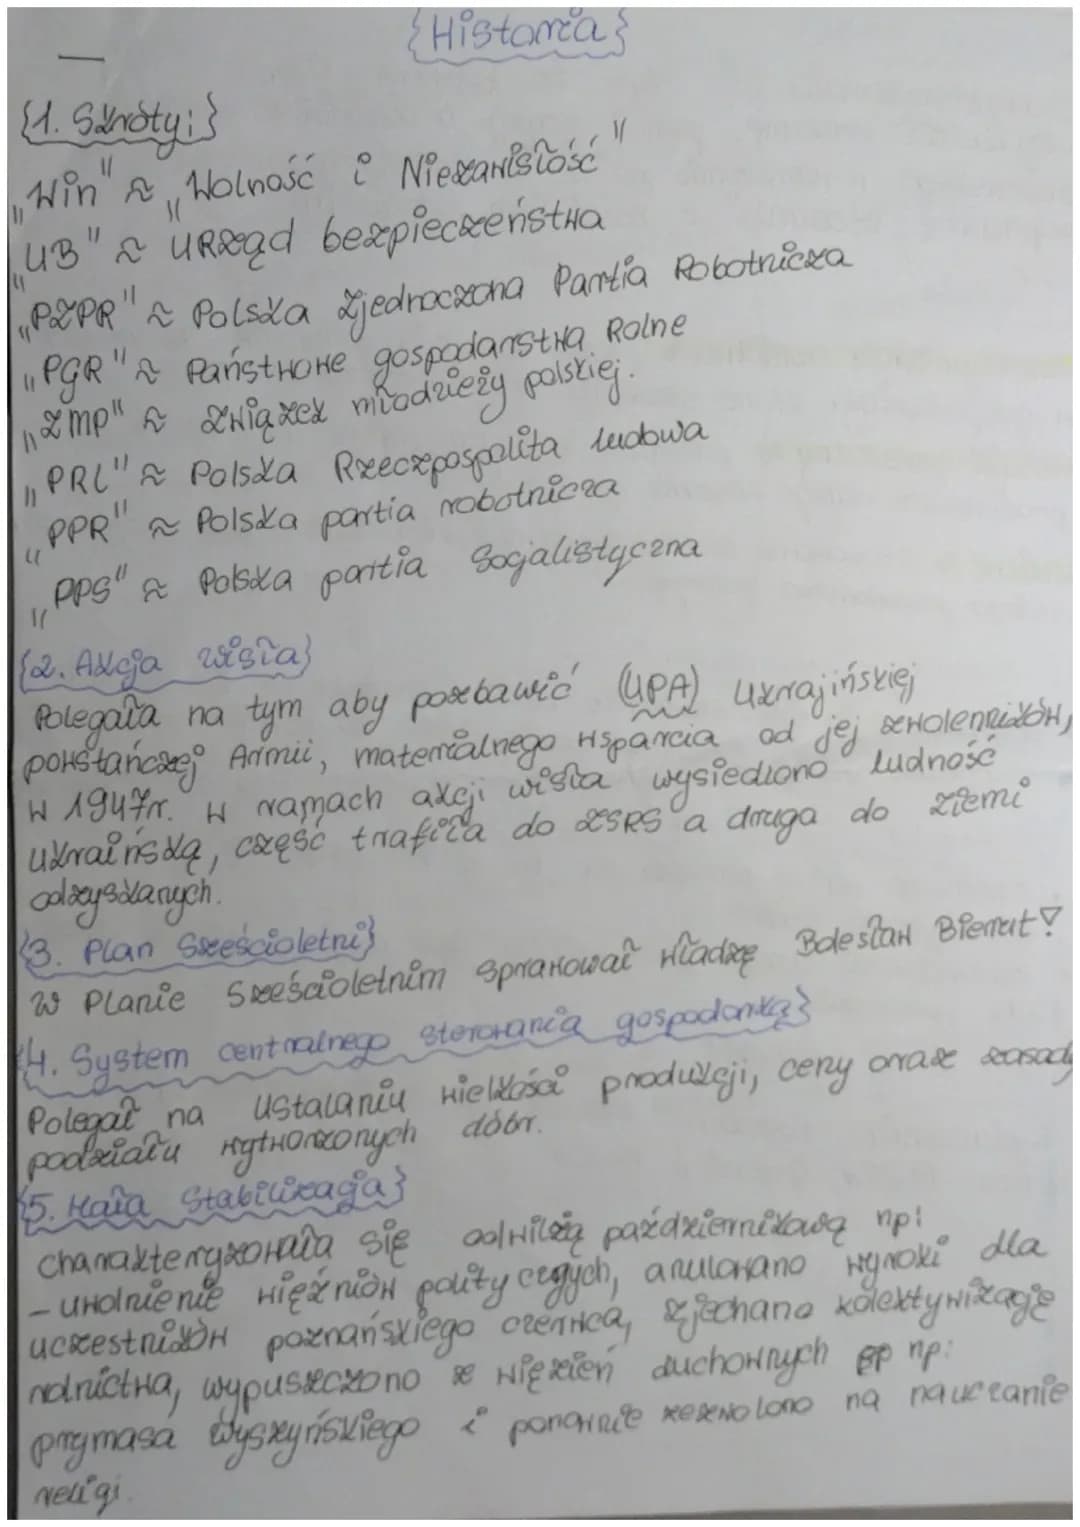 {Historia}
{1. Skróty:}
„Win" ≈ „Wolność i Niezawisłość"
„UB" ≈ URząd bezpieczeństwa
„PZPR" ≈ Polska Zjednoczona Partia Robotnicza
„PGR" ≈ Państwowe gospodarstwa Rolne
„ZMP" ≈ Związek młodzieży polskiej.
„PRL" ≈ Polska Rzeczpospolita ludowa
„PPR" ≈ Polska partia robotnicza
„PPS" ≈ Polska partia Socjalistyczna
{2. Akcja wisła}
Polegała na tym aby pozbawić (UPA) Ukrajińskiej
powstańczej Armii, materialnego wsparcia od jej zwolenników,
w 1947r. w ramach akcji wisła wysiedlono ludność
ukraińską, część trafiła do ZSRS a druga do ziemi
odzyskanych.
{3. Plan Sześcioletni}
W Planie Sześcioletnim sprawował władzę Bolesław Bierut!
{4. System centralnego sterowania gospodarką}
Polegał na ustalaniu wielkości produkcji, ceny oraz zasady
podziału wytworzonych dóbr.
{5. Mała Stabilizacja}
charakteryzowała się odwilżą październikową np:
- uwolnienie więźniów politycznych, anulowano wyroki dla
uczestników poznańskiego czerwca, zjechano kolektywizację
rolnictwa, wypuszczono z więzień duchownych np:
prymasa Wyszyńskiego i ponownie zezwolono na nauczanie
religi.